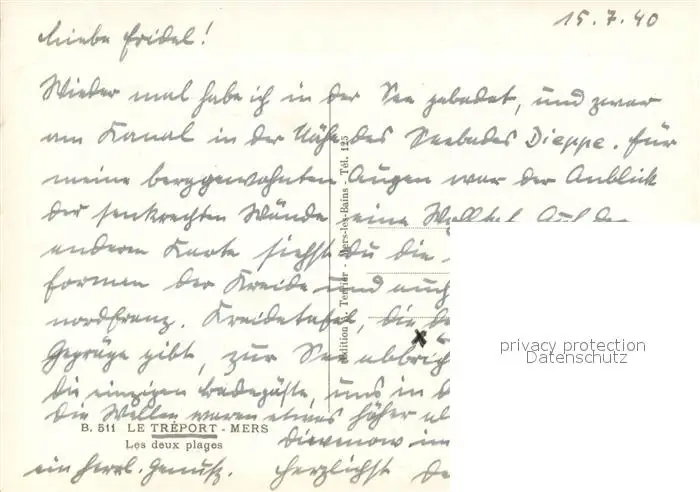 15.7.40
Liebe Fridel!
Wieder mal habe ich in der See gebadet, und zwar
am Kanal in der Nähe des Seebades Dieppe. Für
meine berggewohnten Augen war der Anblick
der senkrechten Wände eine Wohltat. Auf der
anderen Karte siehst du die
Formen der Kreide und auch
nordfranz. Kreidetafel, die de
Gepräge gibt, zur See abbrich
Die einzigen Badegäste, uns in d
Die Wellen waren etwas höher al
Dievenow im
ein herrl. Genuß. Herzlichst De
B. 511 LE TRÉPORT - MERS
Les deux plages
Edition Terrier - Mers-les-Bains - Tél. 125
privacy protection
Datenschutz